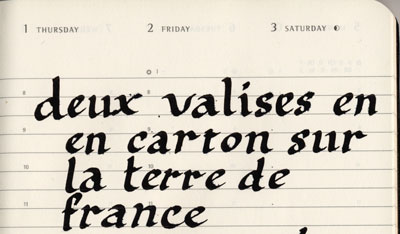 1 THURSDAY 2 FRIDAY 3 SATURDAY
1
8
deux valises en
9
en carton sur
10
la terre de
11
france